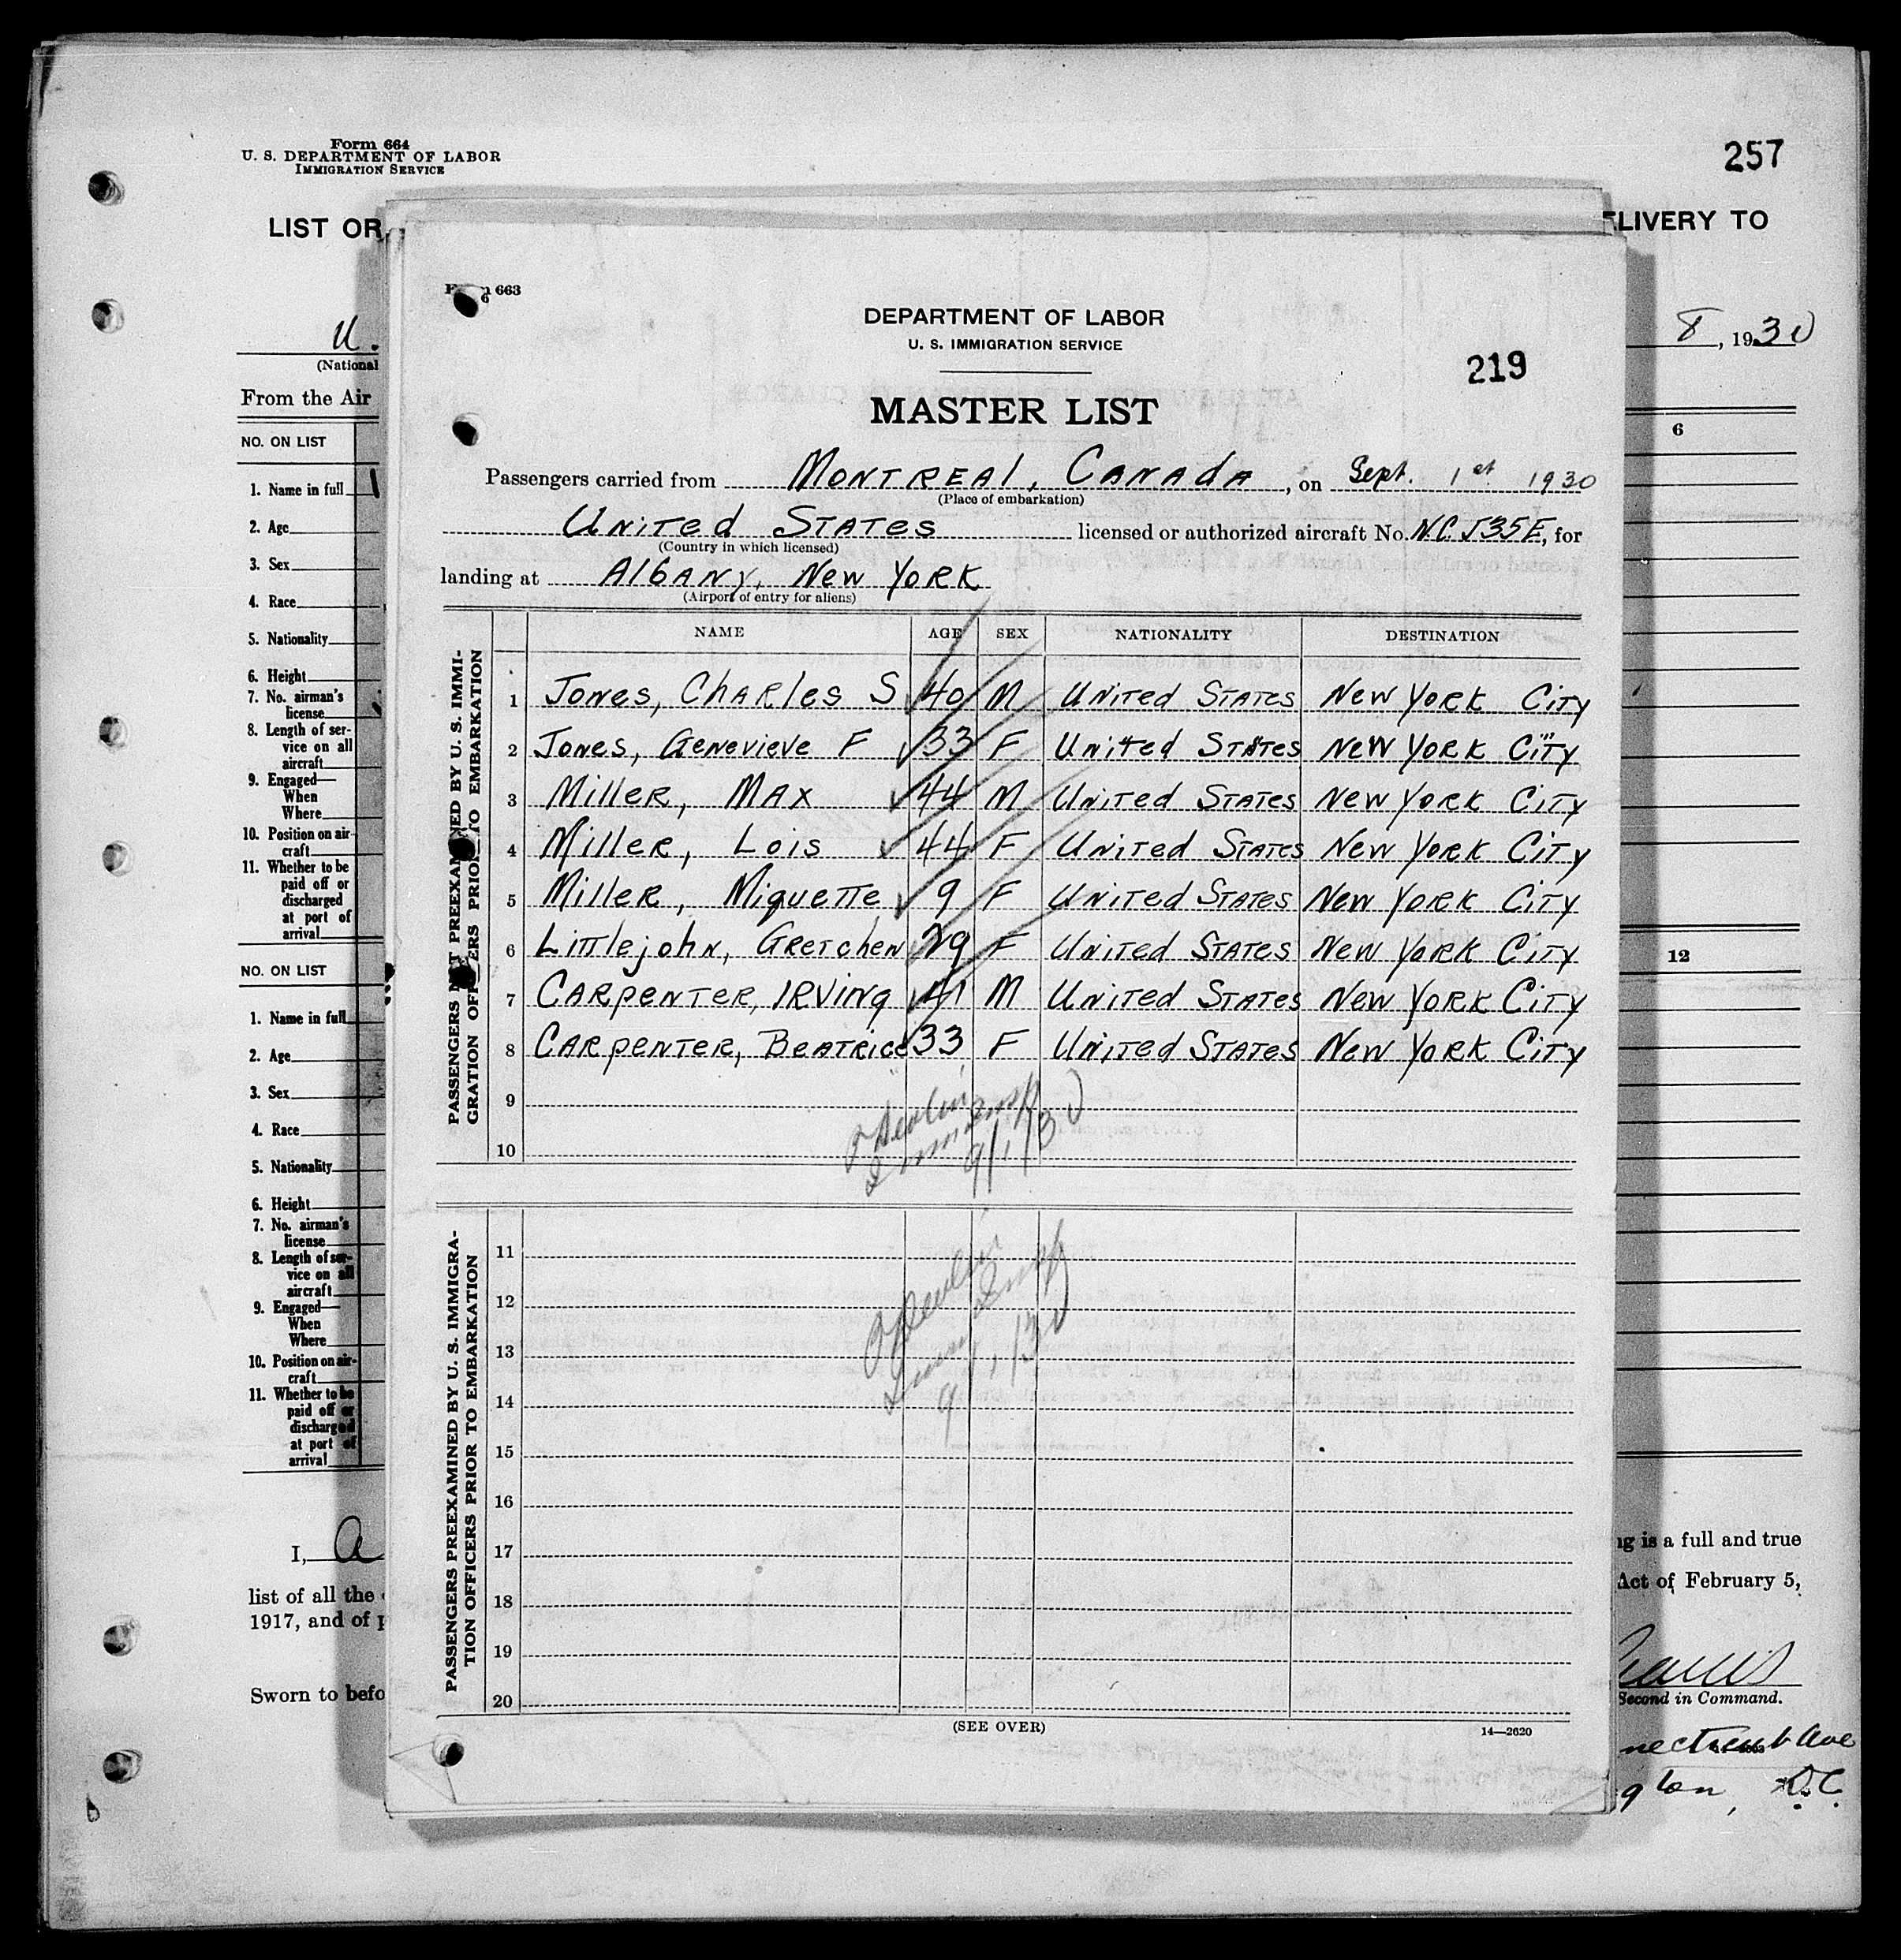 Form 664
U. S. DEPARTMENT OF LABOR
IMMIGRATION SERVICE
257
LIST OR
ELIVERY TO
U.
(National
8, 1930
From the Air
NO. ON LIST
6
1. Name in full
2. Age
3. Sex
4. Race
5. Nationality
6. Height
7. No. airman's
license
8. Length of ser-
vice on all
aircraft
9. Engaged—
When
Where
10. Position on air-
craft
11. Whether to be
paid off or
discharged
at port of
arrival
NO. ON LIST
12
1. Name in full
2. Age
3. Sex
4. Race
5. Nationality
6. Height
7. No. airman's
license
8. Length of ser-
vice on all
aircraft
9. Engaged—
When
Where
10. Position on air-
craft
11. Whether to be
paid off or
discharged
at port of
arrival
I, A
ng is a full and true
list of all the
Act of February 5,
1917, and of
Sworn to befo
Second in Command.
necticut Ave
gton, D.C.
663
DEPARTMENT OF LABOR
U. S. IMMIGRATION SERVICE
219
MASTER LIST
Passengers carried from Montreal, Canada, on Sept. 1st 1930
(Place of embarkation)
United States licensed or authorized aircraft No. N.C. 535E, for
(Country in which licensed)
landing at Albany, New York
(Airport of entry for aliens)
PASSENGERS NOT PREEXAMINED BY U. S. IMMI-
GRATION OFFICERS PRIOR TO EMBARKATION
NAME AGE SEX NATIONALITY DESTINATION
1 Jones, Charles S 40 M United States New York City
2 Jones, Genevieve F 33 F United States New York City
3 Miller, Max 44 M United States New York City
4 Miller, Lois 44 F United States New York City
5 Miller, Miquette 9 F United States New York City
6 Littlejohn, Gretchen 29 F United States New York City
7 Carpenter, Irving 41 M United States New York City
8 Carpenter, Beatrice 33 F United States New York City
9
10
9/1/30
PASSENGERS PREEXAMINED BY U. S. IMMIGRA-
TION OFFICERS PRIOR TO EMBARKATION
11
12
13
14
15
16
17
18
19
20
9/1/30
(SEE OVER)
14—2620